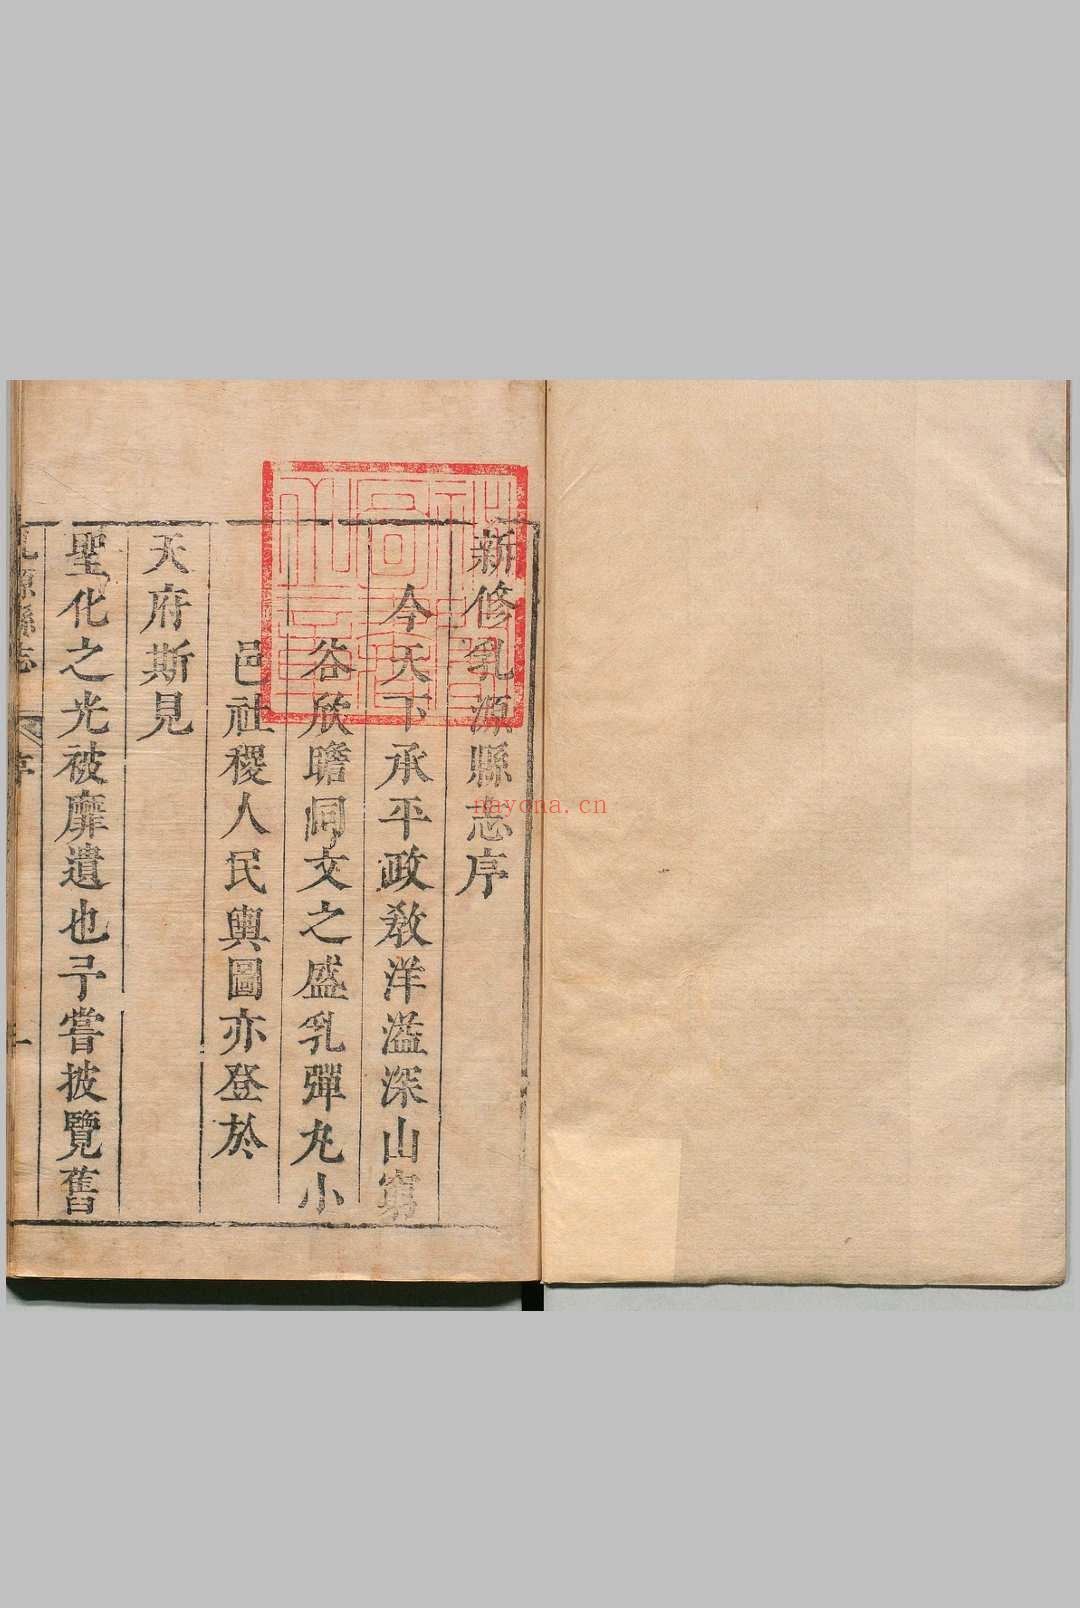 新修乳源縣志序
今天下承平政敎洋溢深山窮
谷欣瞻同文之盛乳彈丸小
邑社稷人民輿圖亦登於
天府斯見
聖化之光被靡遺也予嘗披覽舊
源縣志
序
一
nayona.cn